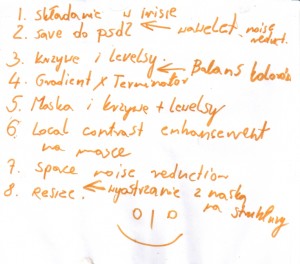 1. Składanie w irisie
2. save do psd ← wavelet noise reduct.
3. Krzywe i Levelsy ← Balans kolorów
4. Gradient X Terminator
5. Maska i krzywe + levelsy
6 Local contrast enhancement
na masce
7. space noise reduction
8. Resiec. ← wyostrzanie z maską
na